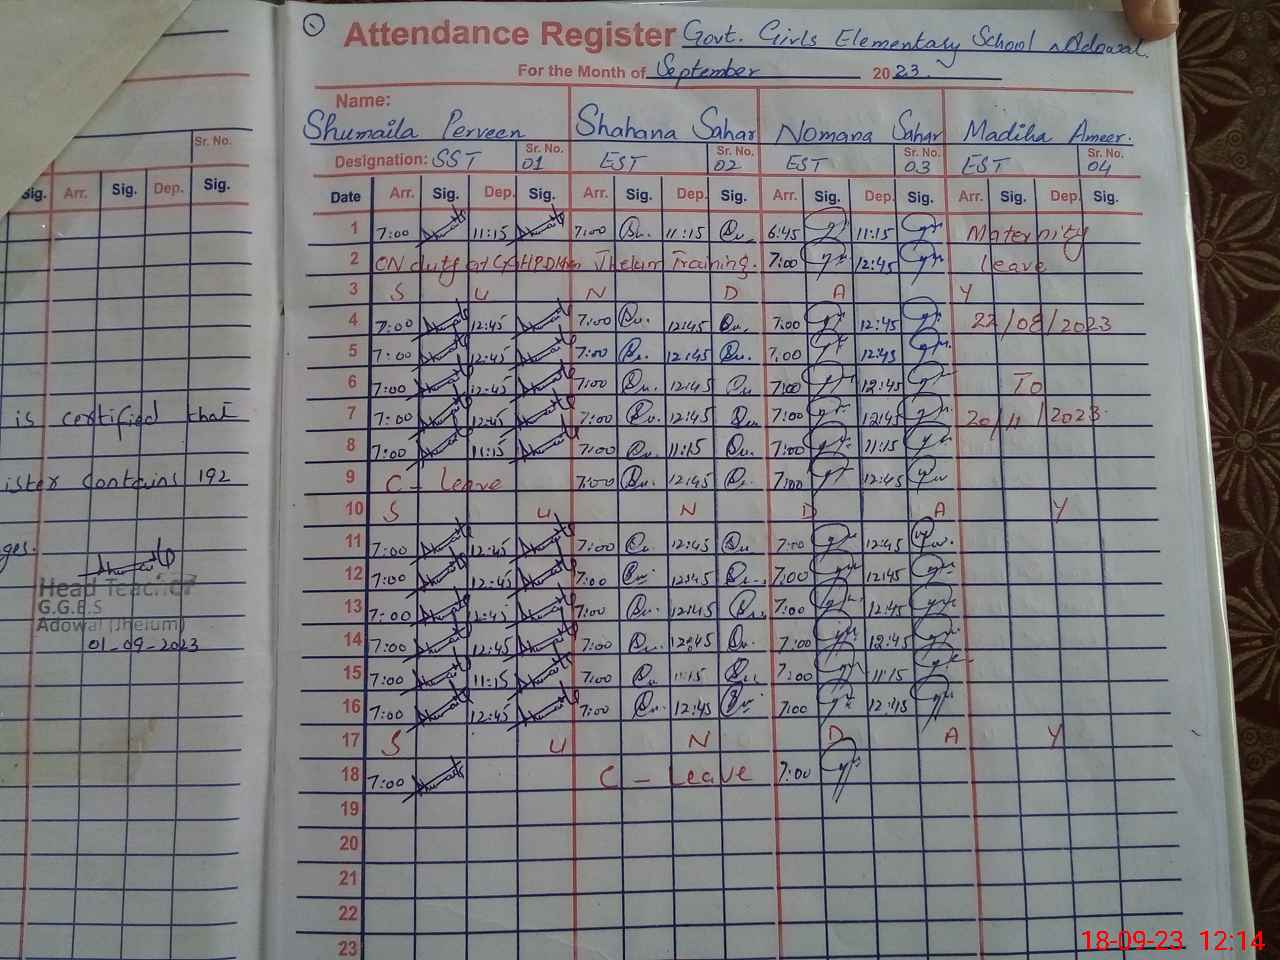 Sr. No.
Sig. Arr. Sig. Dep. Sig.
is certified that
ister contains 192
ges.
Head Teacher
G.G.E.S
Adowal (Jhelum)
01-09-2023
Attendance Register Govt. Girls Elementary School Adowal.
For the Month of September 2023.
Name:
Shumaila Perveen Shahana Sahar Nomana Sahar Madiha Ameer.
Designation: SST Sr. No. 01 EST Sr. No. 02 EST Sr. No. 03 EST Sr. No. 04
Date Arr. Sig. Dep. Sig. Arr. Sig. Dep. Sig. Arr. Sig. Dep. Sig. Arr. Sig. Dep. Sig.
1 7:00 11:15 7:00 11:15 6:45 11:15 Maternity
2 ON duty at Jhelum Training. 7:00 12:45 leave
3 S U N D A Y
4 7:00 12:45 7:00 12:45 7:00 12:45 22/08/2023
5 7:00 12:45 7:00 12:45 7:00 12:45
6 7:00 12:45 7:00 12:45 7:00 12:45 To
7 7:00 12:45 7:00 12:45 7:00 12:45 20/11/2023
8 7:00 11:15 7:00 11:15 7:00 11:15
9 C - Leave 7:00 12:45 7:00 12:45
10 S U N D A Y
11 7:00 12:45 7:00 12:45 7:00 12:45
12 7:00 12:45 7:00 12:45 7:00 12:45
13 7:00 12:45 7:00 12:45 7:00 12:45
14 7:00 12:45 7:00 12:45 7:00 12:45
15 7:00 11:15 7:00 11:15 7:00 11:15
16 7:00 12:45 7:00 12:45 7:00 12:45
17 S U N D A Y
18 7:00 C - Leave 7:00
19
20
21
22
23
18-09-23 12:14